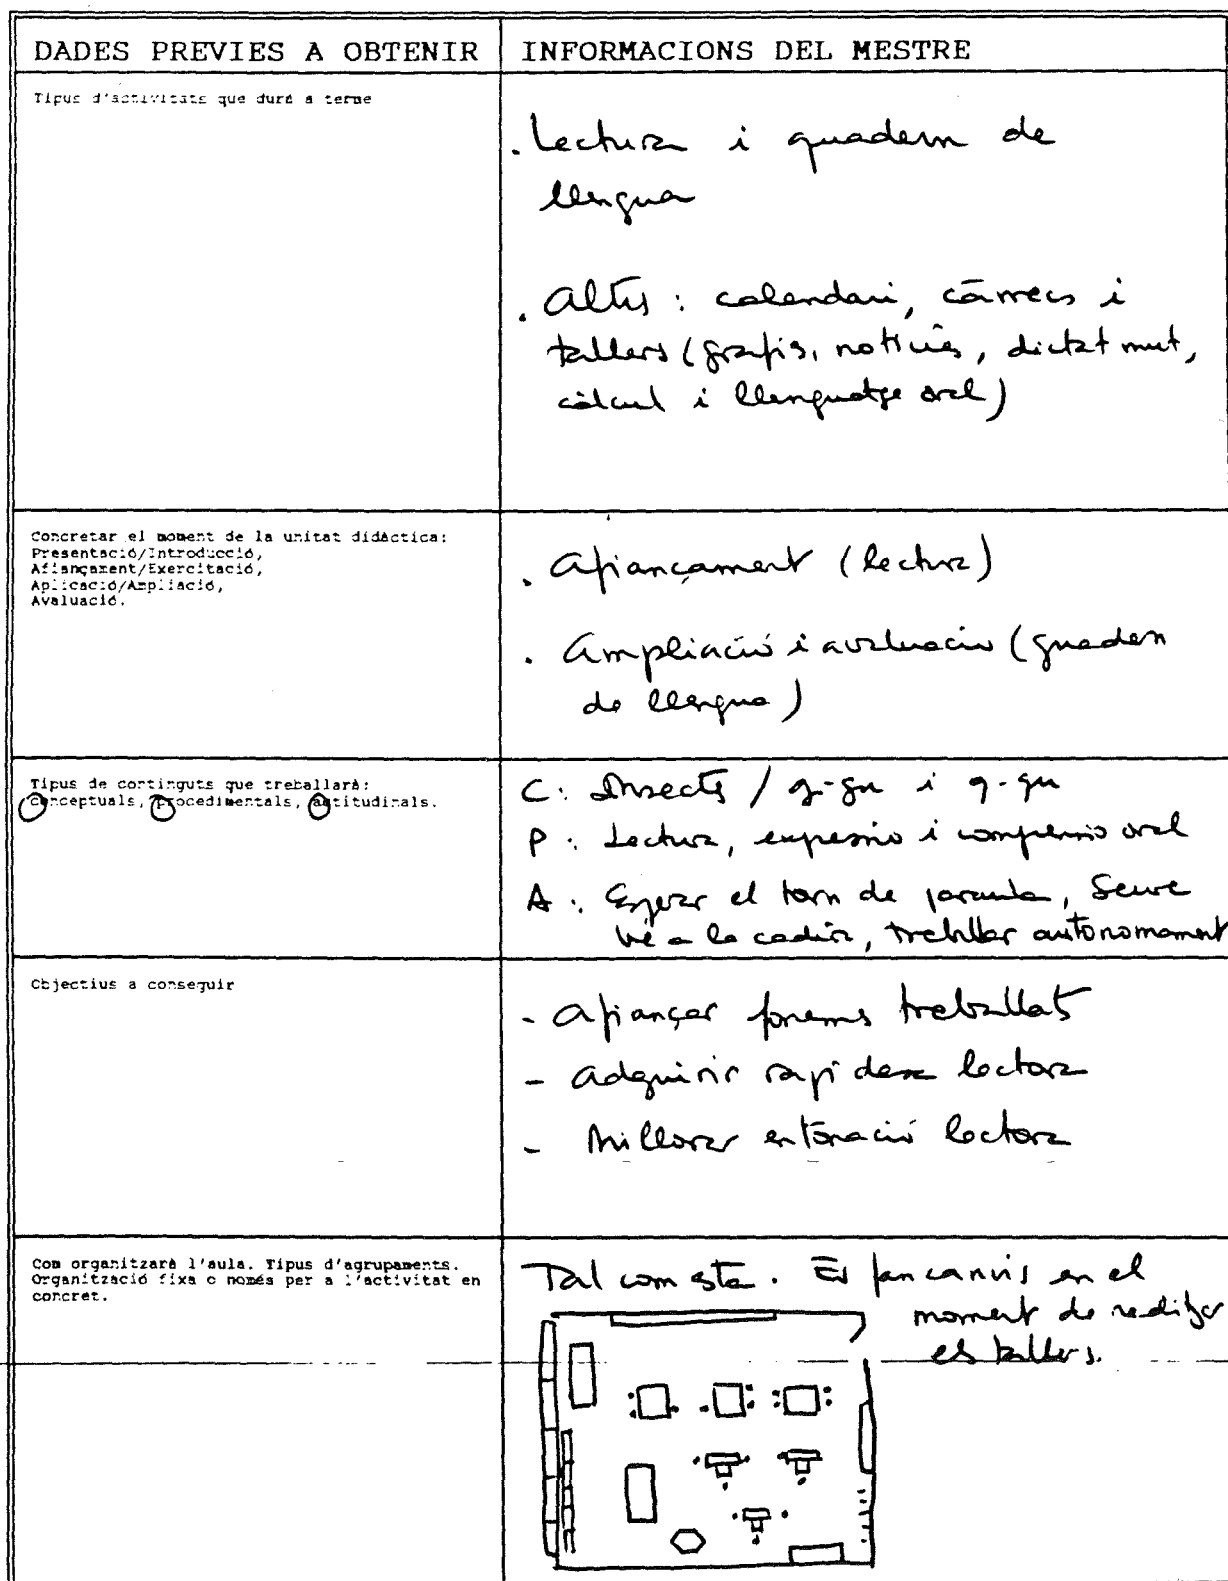 DADES PREVIES A OBTENIR
INFORMACIONS DEL MESTRE
Tipus d'activitats que durà a terme
. Lectura i quadern de
llengua
. Altres : calendari, càrrecs i
tallers (grafis, notícies, dictat mut,
càlcul i llenguatge oral)
Concretar el moment de la unitat didàctica:
Presentació/Introducció,
Afiançament/Exercitació,
Aplicació/Ampliació,
Avaluació.
. Afiançament (lectura)
. Ampliació i avaluació (quadern
de llengua)
Tipus de continguts que treballarà:
conceptuals, procedimentals, actitudinals.
C: Insectes / g-gu i q-qu
P: Lectura, expressió i comprensió oral
A: Esperar el torn de paraula, Seure
bé a la cadira, treballar autonomament
Objectius a conseguir
- Afiançar fonemes treballats
- Adquirir rapidesa lectora
- Millorar entonació lectora
Com organitzarà l'aula. Tipus d'agrupaments.
Organització fixa o només per a l'activitat en
concret.
Tal com està. Es fan canvis en el
moment de realitzar
els tallers.